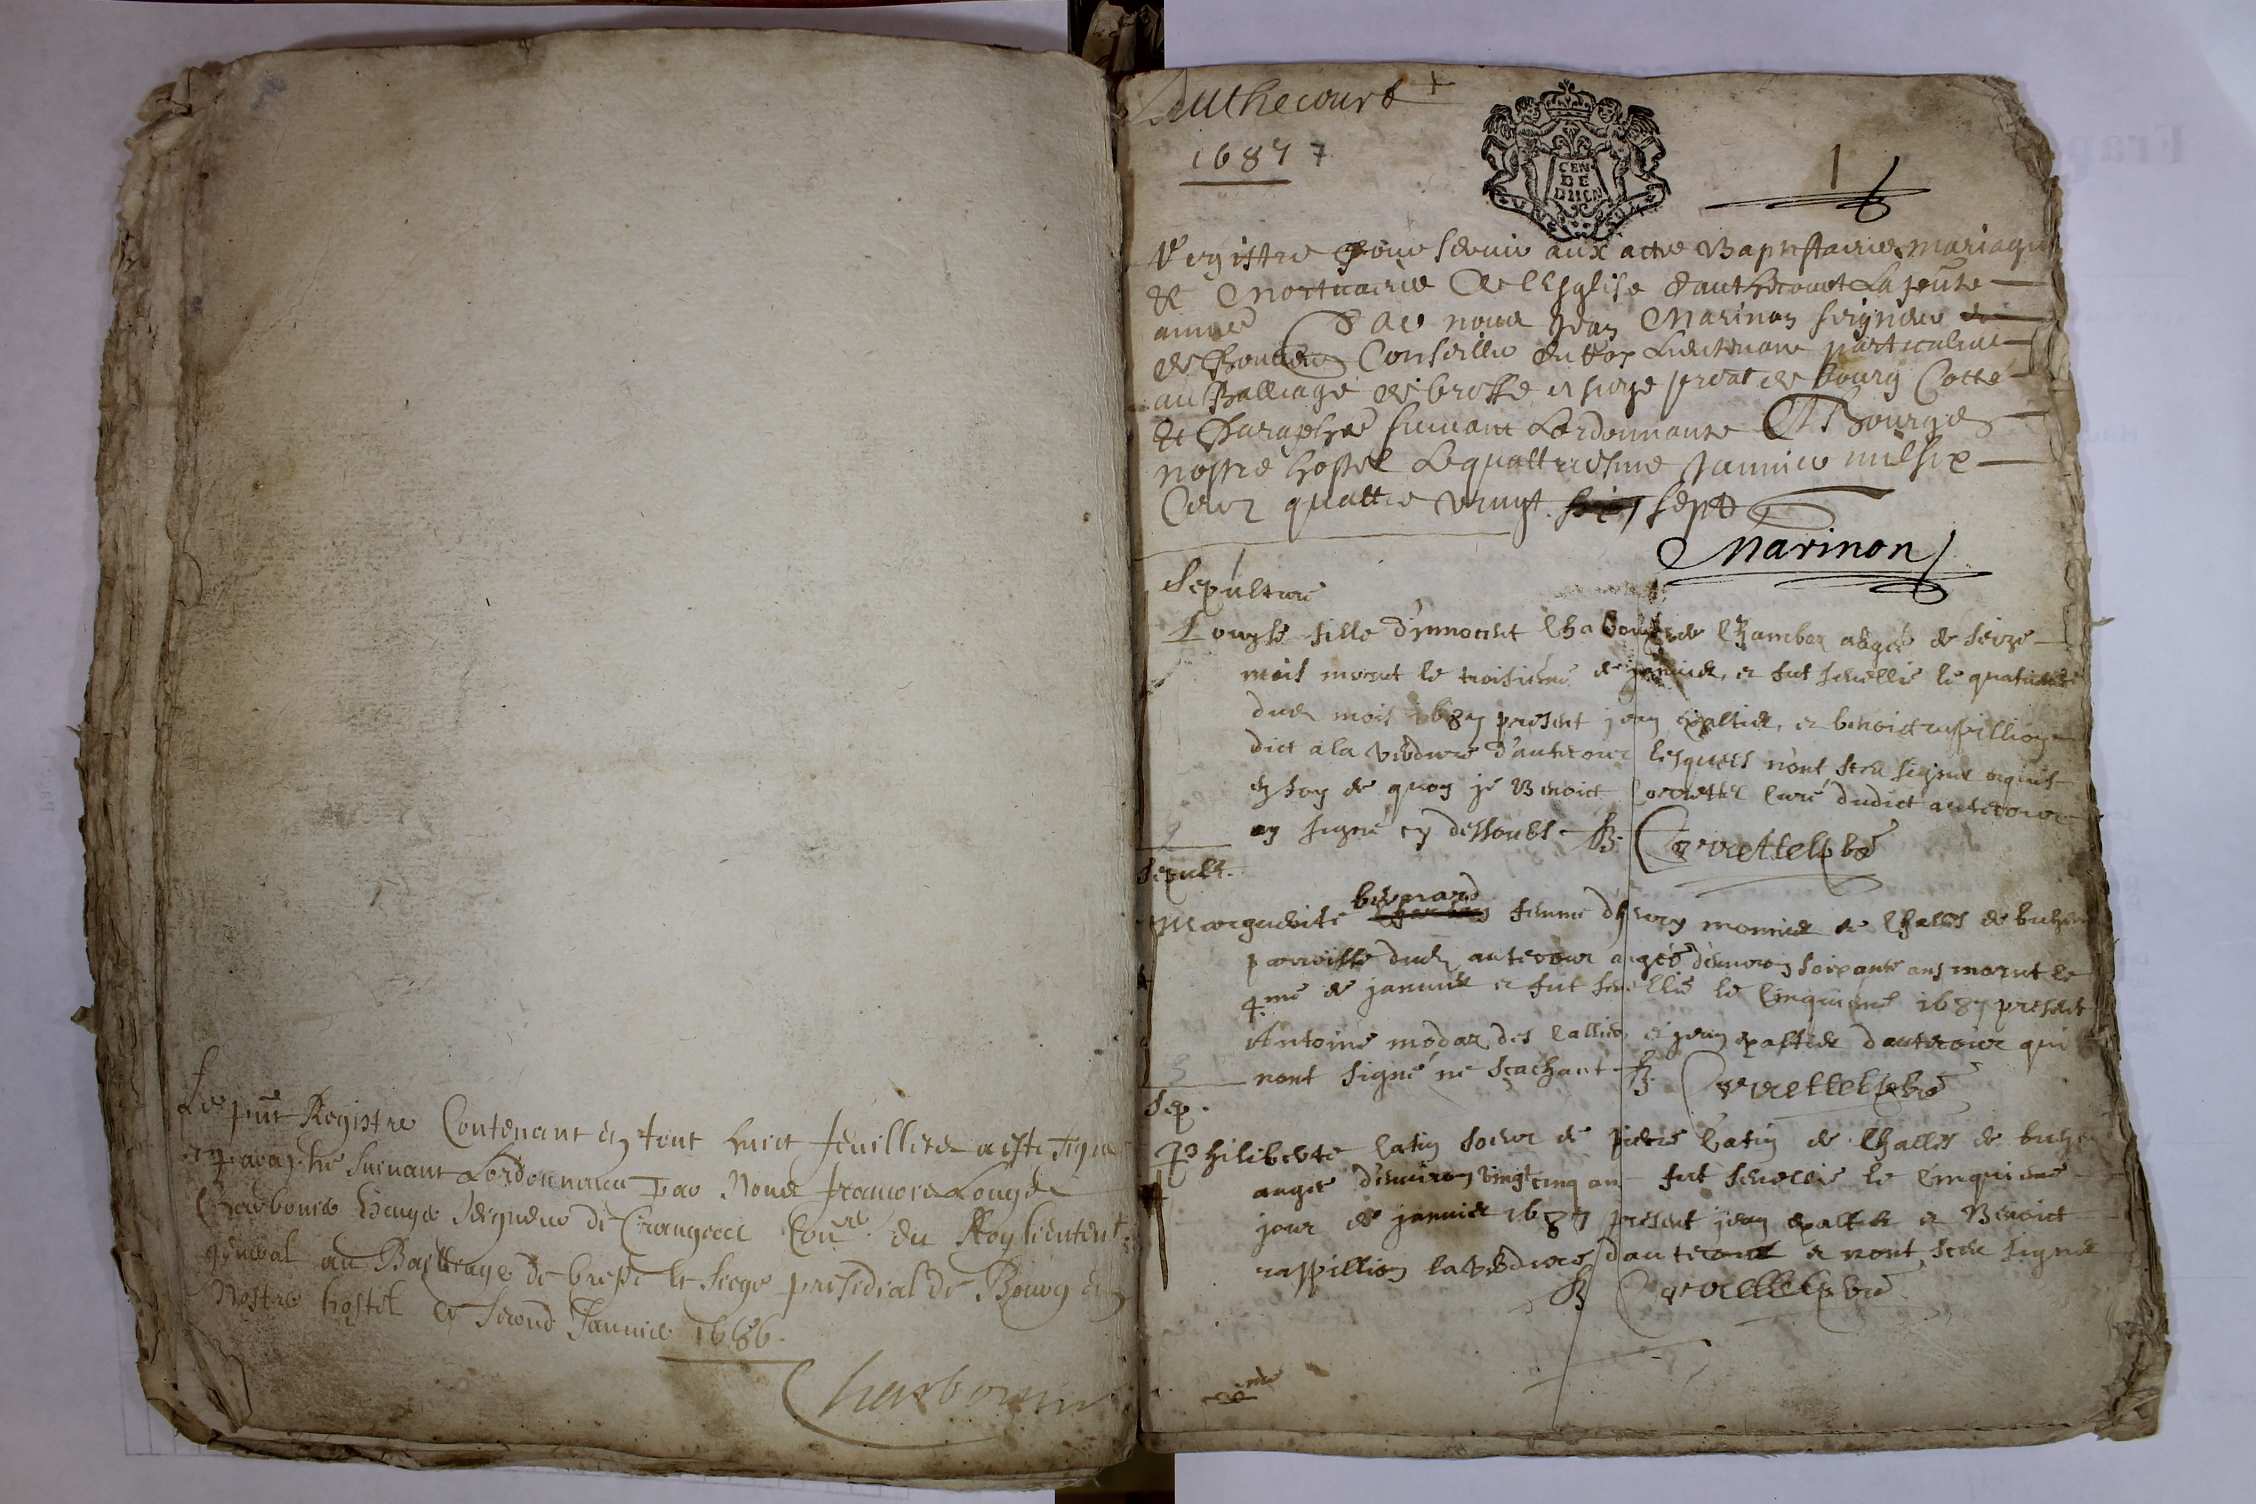 Le pnt Registre Contenant en tout huict feuillets a esté signé
et paraphé suivant Lordonnance Par Nous francois Louys de
Charbonnie Seigneur de Crangeac Conr. du Roy lieutent
general au Bailliage de bresse et siege presidial de Bourg en
Nostre hostel ce second Janvier 1686.
Charbonnie
Authecourt
1687 7
1
GEN
DE
Registre Pour servir aux actes Baptistaires mariages
& Mortuaires de l'Esglise d'authecourt La presente
année Par nous Jean Marinon seigneur
de Conseiller du Roy Lieutenant particulier
au Balliage de bresse et siege preal de bourg Cotté
et Paraphé suivant Lordonnance A Bourg en
nostre hostel Le quattriesme Janvier mil six
Cens quattre vingt sept
Marinon
Sepulture
Louyse fille d'innocent de Chambor aagée de seize
mois morut le troisieme de janvier, et fut sevellie le quatrieme
dud mois 1687 present jean paltier, et benoict raspillion
dict a la verdure d'autecour lesquels n'ont sceu signer enquis
en foy de quoy je Benoict Correttel curé dudict autecour
ay signé cy dessoubs B. Correttel pbre
Sepult.
Marguerite bernard femme d' monnier de Challes de
parroisse dud autecour aagée d'environ soixante ans morut le
4.me de janvier et fut sevellie le cinquieme 1687 present
Antoine modar des et jean paltier d'autecour qui
nont signé ne scachant B. Correttel pbre
Sep.
Philiberte Catin soeur de pierre Catin de Challes de
aagée d'environ vingt cinq an fut sevellie le cinquieme
jour de janvier 1687 present jean paltier et Benoict
raspillion la verdure d'autecour et nont sceu signer
B Correttel pbre